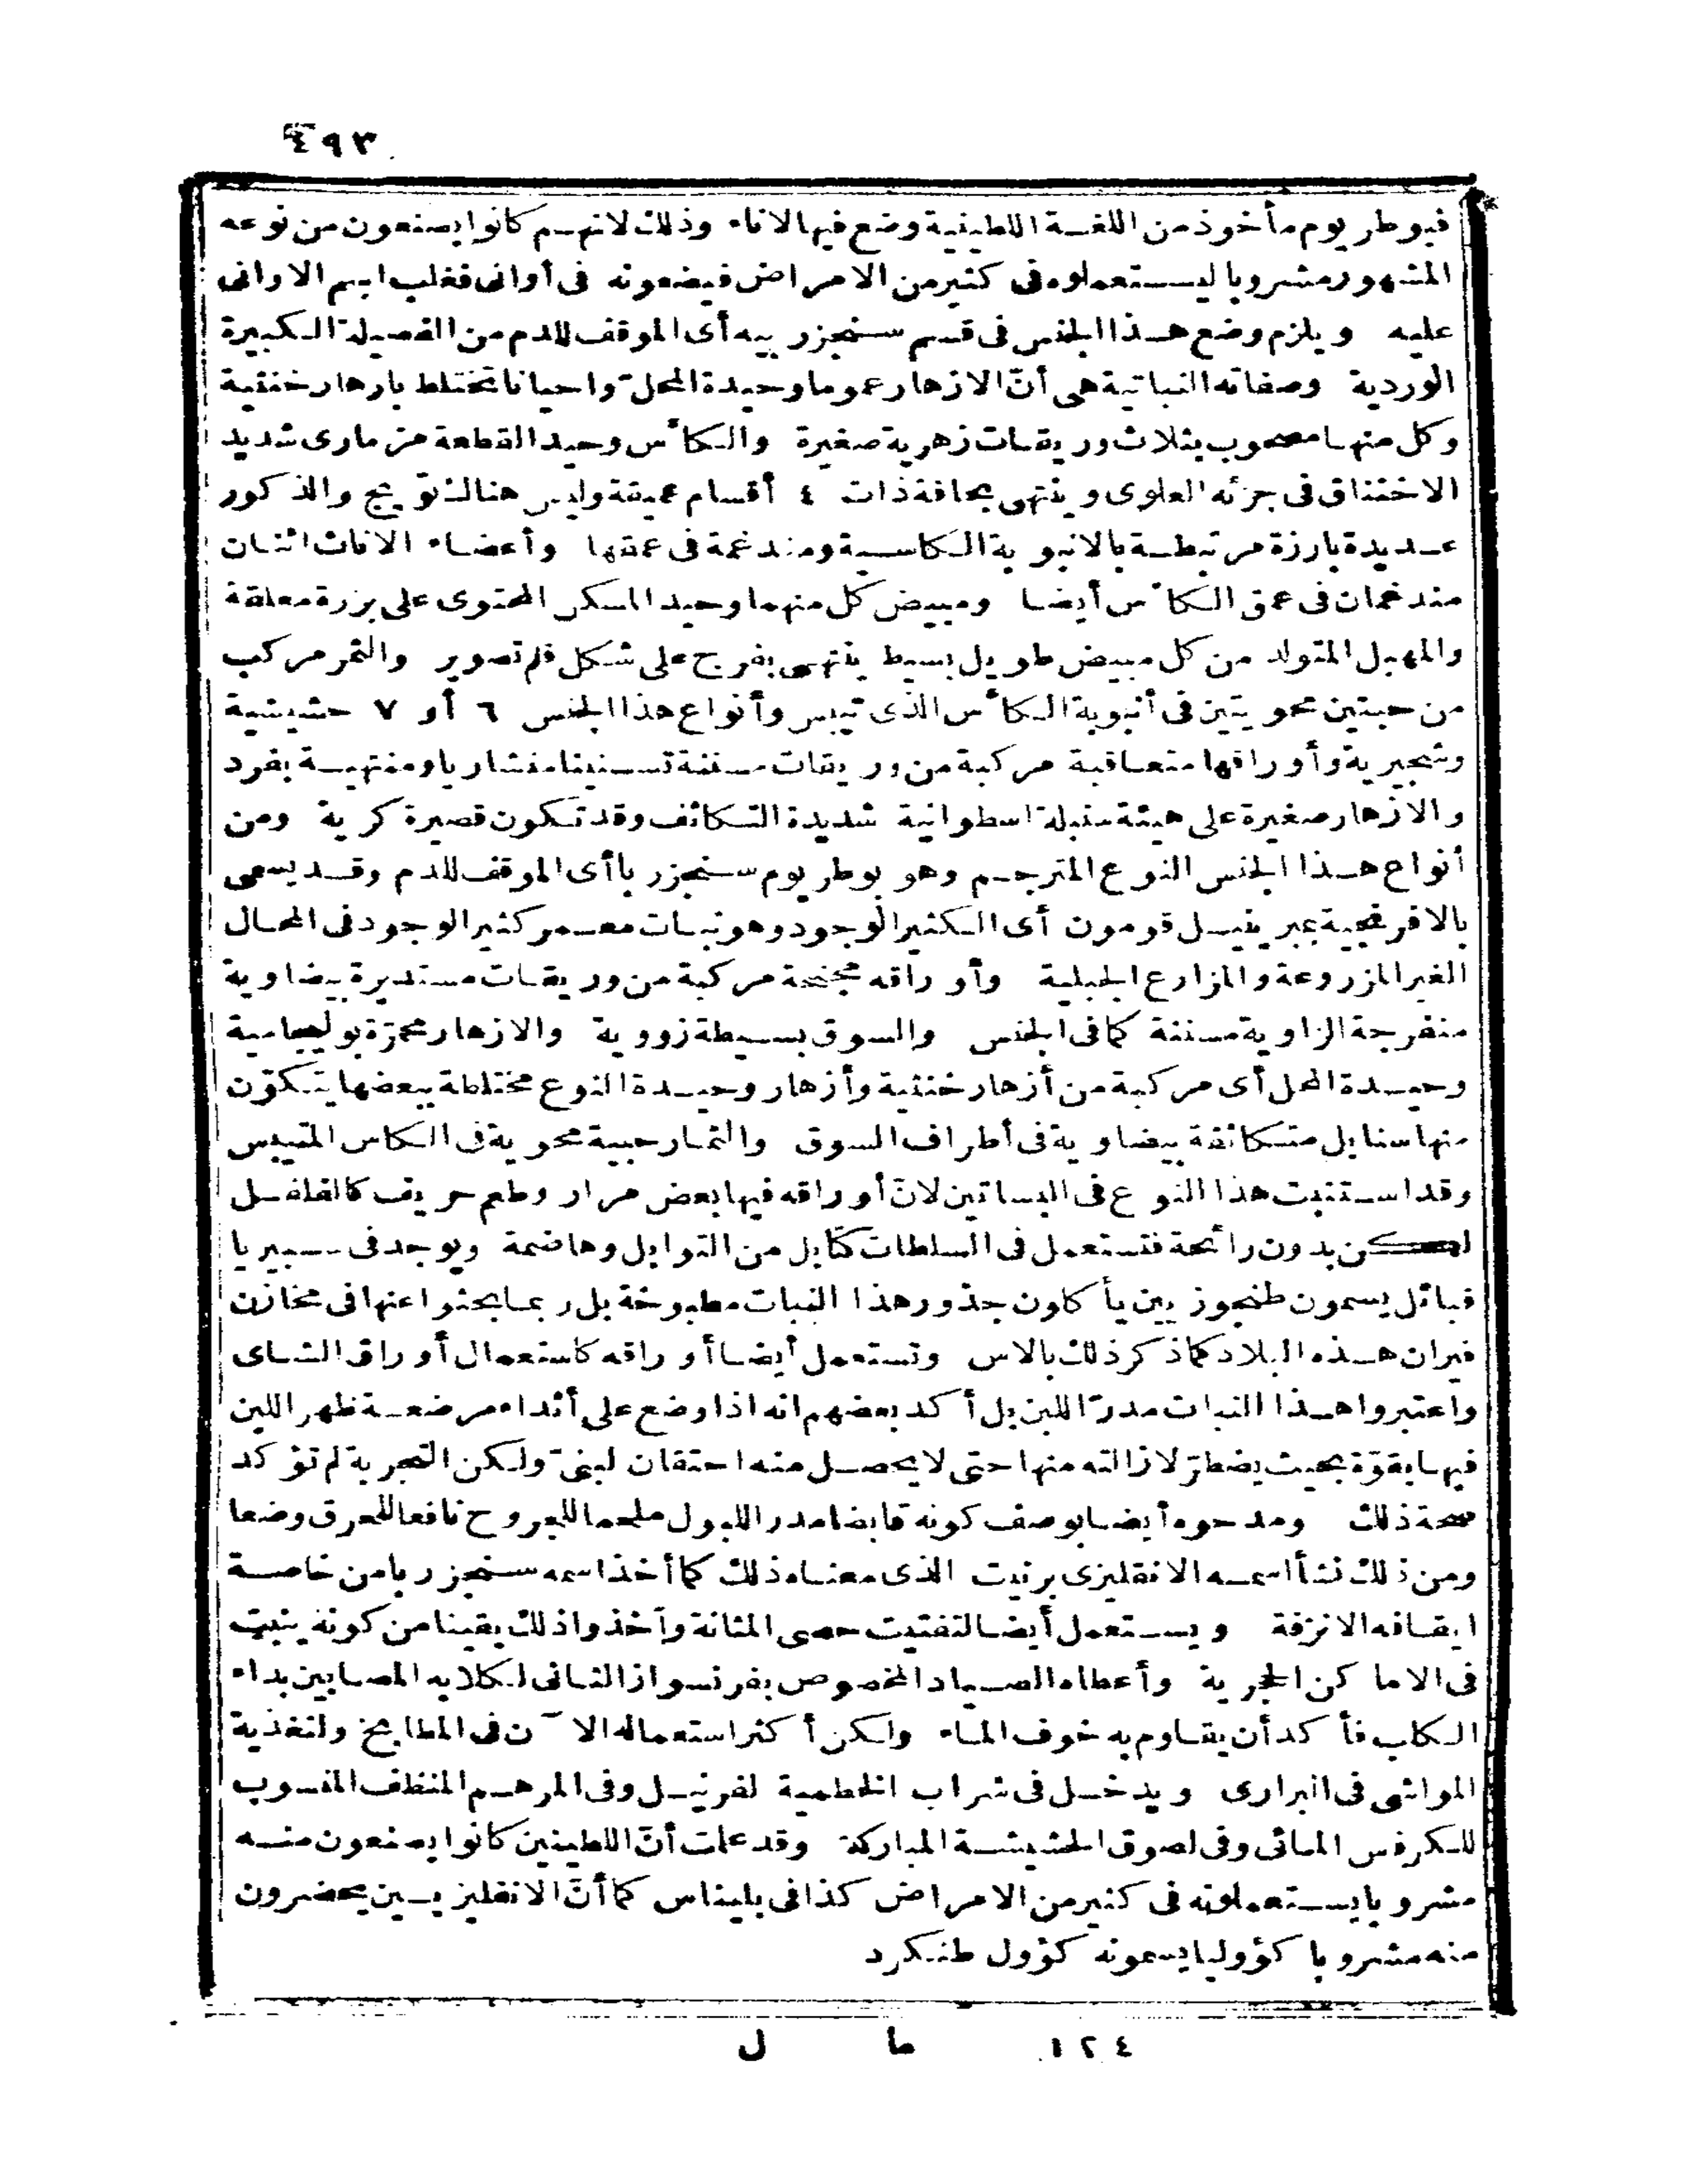 ٤٩٣
فبوطريوم مأخوذ من اللغة اللطينية وضع فيها الاناء وذلك لانهم كانوا يصنعون من نوعه
المشهور مشروبا ليستعملوه فى كثير من الامراض فيضعونه فى أوانى فغلب اسم الاوانى
عليه ويلزم وضع هذا الجنس فى قسم سنجزربيه أى الموقف للدم من الفصيلة الكبيرة
الوردية وصفاته النباتية هى أنّ الازهار عموما وحيدة المحلّ واحيانا تختلط بازهار خنثية
وكل منها مصحوب بثلاث وريقات زهرية صغيرة والكأس وحيد القطعة مزمارى شديد
الاختناق فى جزئه العلوى وينتهى بحافة ذات ٤ أقسام عميقة وليس هنالك تويج والذكور
عديدة بارزة مرتبطة بالانبوبة الكاسية ومندغمة فى عمقها وأعضاء الاناث اثنان
مندغمان فى عمق الكأس أيضا ومبيض كل منهما وحيد المسكن المحتوى على بزرة معلقة
والمهبل المتولد من كل مبيض طويل بسيط ينتهى بفرج على شكل قلم تصوير والثمر مركب
من حبتين محويتين فى أنبوبة الكأس الذى تيبس وأنواع هذا الجنس ٦ أو ٧ حشيشية
وشجيرية وأوراقها متعاقبة مركبة من وريقات مسننة تسنينا منشاريا ومنتهية بفرد
والازهار صغيرة على هيئة سنبلة اسطوانية شديدة التكاثف وقد تكون قصيرة كرية ومن
أنواع هذا الجنس النوع المترجم وهو بوطريوم سنجزربا أى الموقف للدم وقد يسمى
بالافرنجية بمبرينيل قومون أى الكثير الوجود وهو نبات معمر كثير الوجود فى المحال
الغير المزروعة والمزارع الجبلية وأوراقه مجنحة مركبة من وريقات مستديرة بيضاوية
منفرجة الزاوية مسننة كما فى الجنس والسوق بسيطة زووية والازهار محمرّة بوليجامية
وحيدة المحل أى مركبة من أزهار خنثية وأزهار وحيدة النوع مختلطة ببعضها يتكوّن
منها سنابل متكاثفة بيضاوية فى أطراف السوق والثمار حبية محوية فى الكاس المتيبس
وقد استنبت هذا النوع فى البساتين لانّ أوراقه فيها بعض مرار وطعم حريف كالفلفل
لكن بدون رائحة فتستعمل فى السلطات كتابل من التوابل وهاضمة ويوجد فى سيبيريا
قبائل يسمون طنجوزيين يأكلون جذور هذا النبات مطبوخة بل ربما بحثوا عنها فى مخازن
فيران هذه البلاد كما ذكر ذلك بالاس وتستعمل أيضا أوراقه كاستعمال أوراق الشاى
واعتبروا هذا النبات مدرّا للبن بل أكد بعضهم انه اذا وضع على أثداء مرضعة ظهر اللبن
فيها بقوّة بحيث يضطرّ لازالته منها حتى لا يحصل منه احتقان لبنىّ ولكن التجربة لم تؤكد
صحة ذلك ومدحوه أيضا بوصف كونه قابضا مدر اللبول ملحما للجروح نافعا للحرق وضعا
ومن ذلك نشأ اسمه الانقليزى برنيت الذى معناه ذلك كما أخذ اسمه سنجزربا من خاصة
ايقافه الانزفة ويستعمل أيضا لتفتيت حصى المثانة وأخذوا ذلك يقينا من كونه ينبت
فى الاماكن الحجرية وأعطاه الصياد المخصوص بفرنسواز الثانى لكلابه المصابين بداء
الكلب فأكد أن يقاوم به خوف الماء ولكن أكثر استعماله الآن فى المطابخ ولتغذية
المواشى فى البرارى ويدخل فى شراب الخطمية لفرنيل وفى المرهم المنظف المنسوب
للكرفس المائى وفى لصوق الحشيشة المباركة وقد علمت أنّ اللطينيين كانوا يصنعون منه
مشروبا يستعملونه فى كثير من الامراض كذا فى بليناس كما أنّ الانقليزيين يحضرون
منه مشروبا كؤوليا يسمونه كؤول طنكرد
١٢٤ ما ل